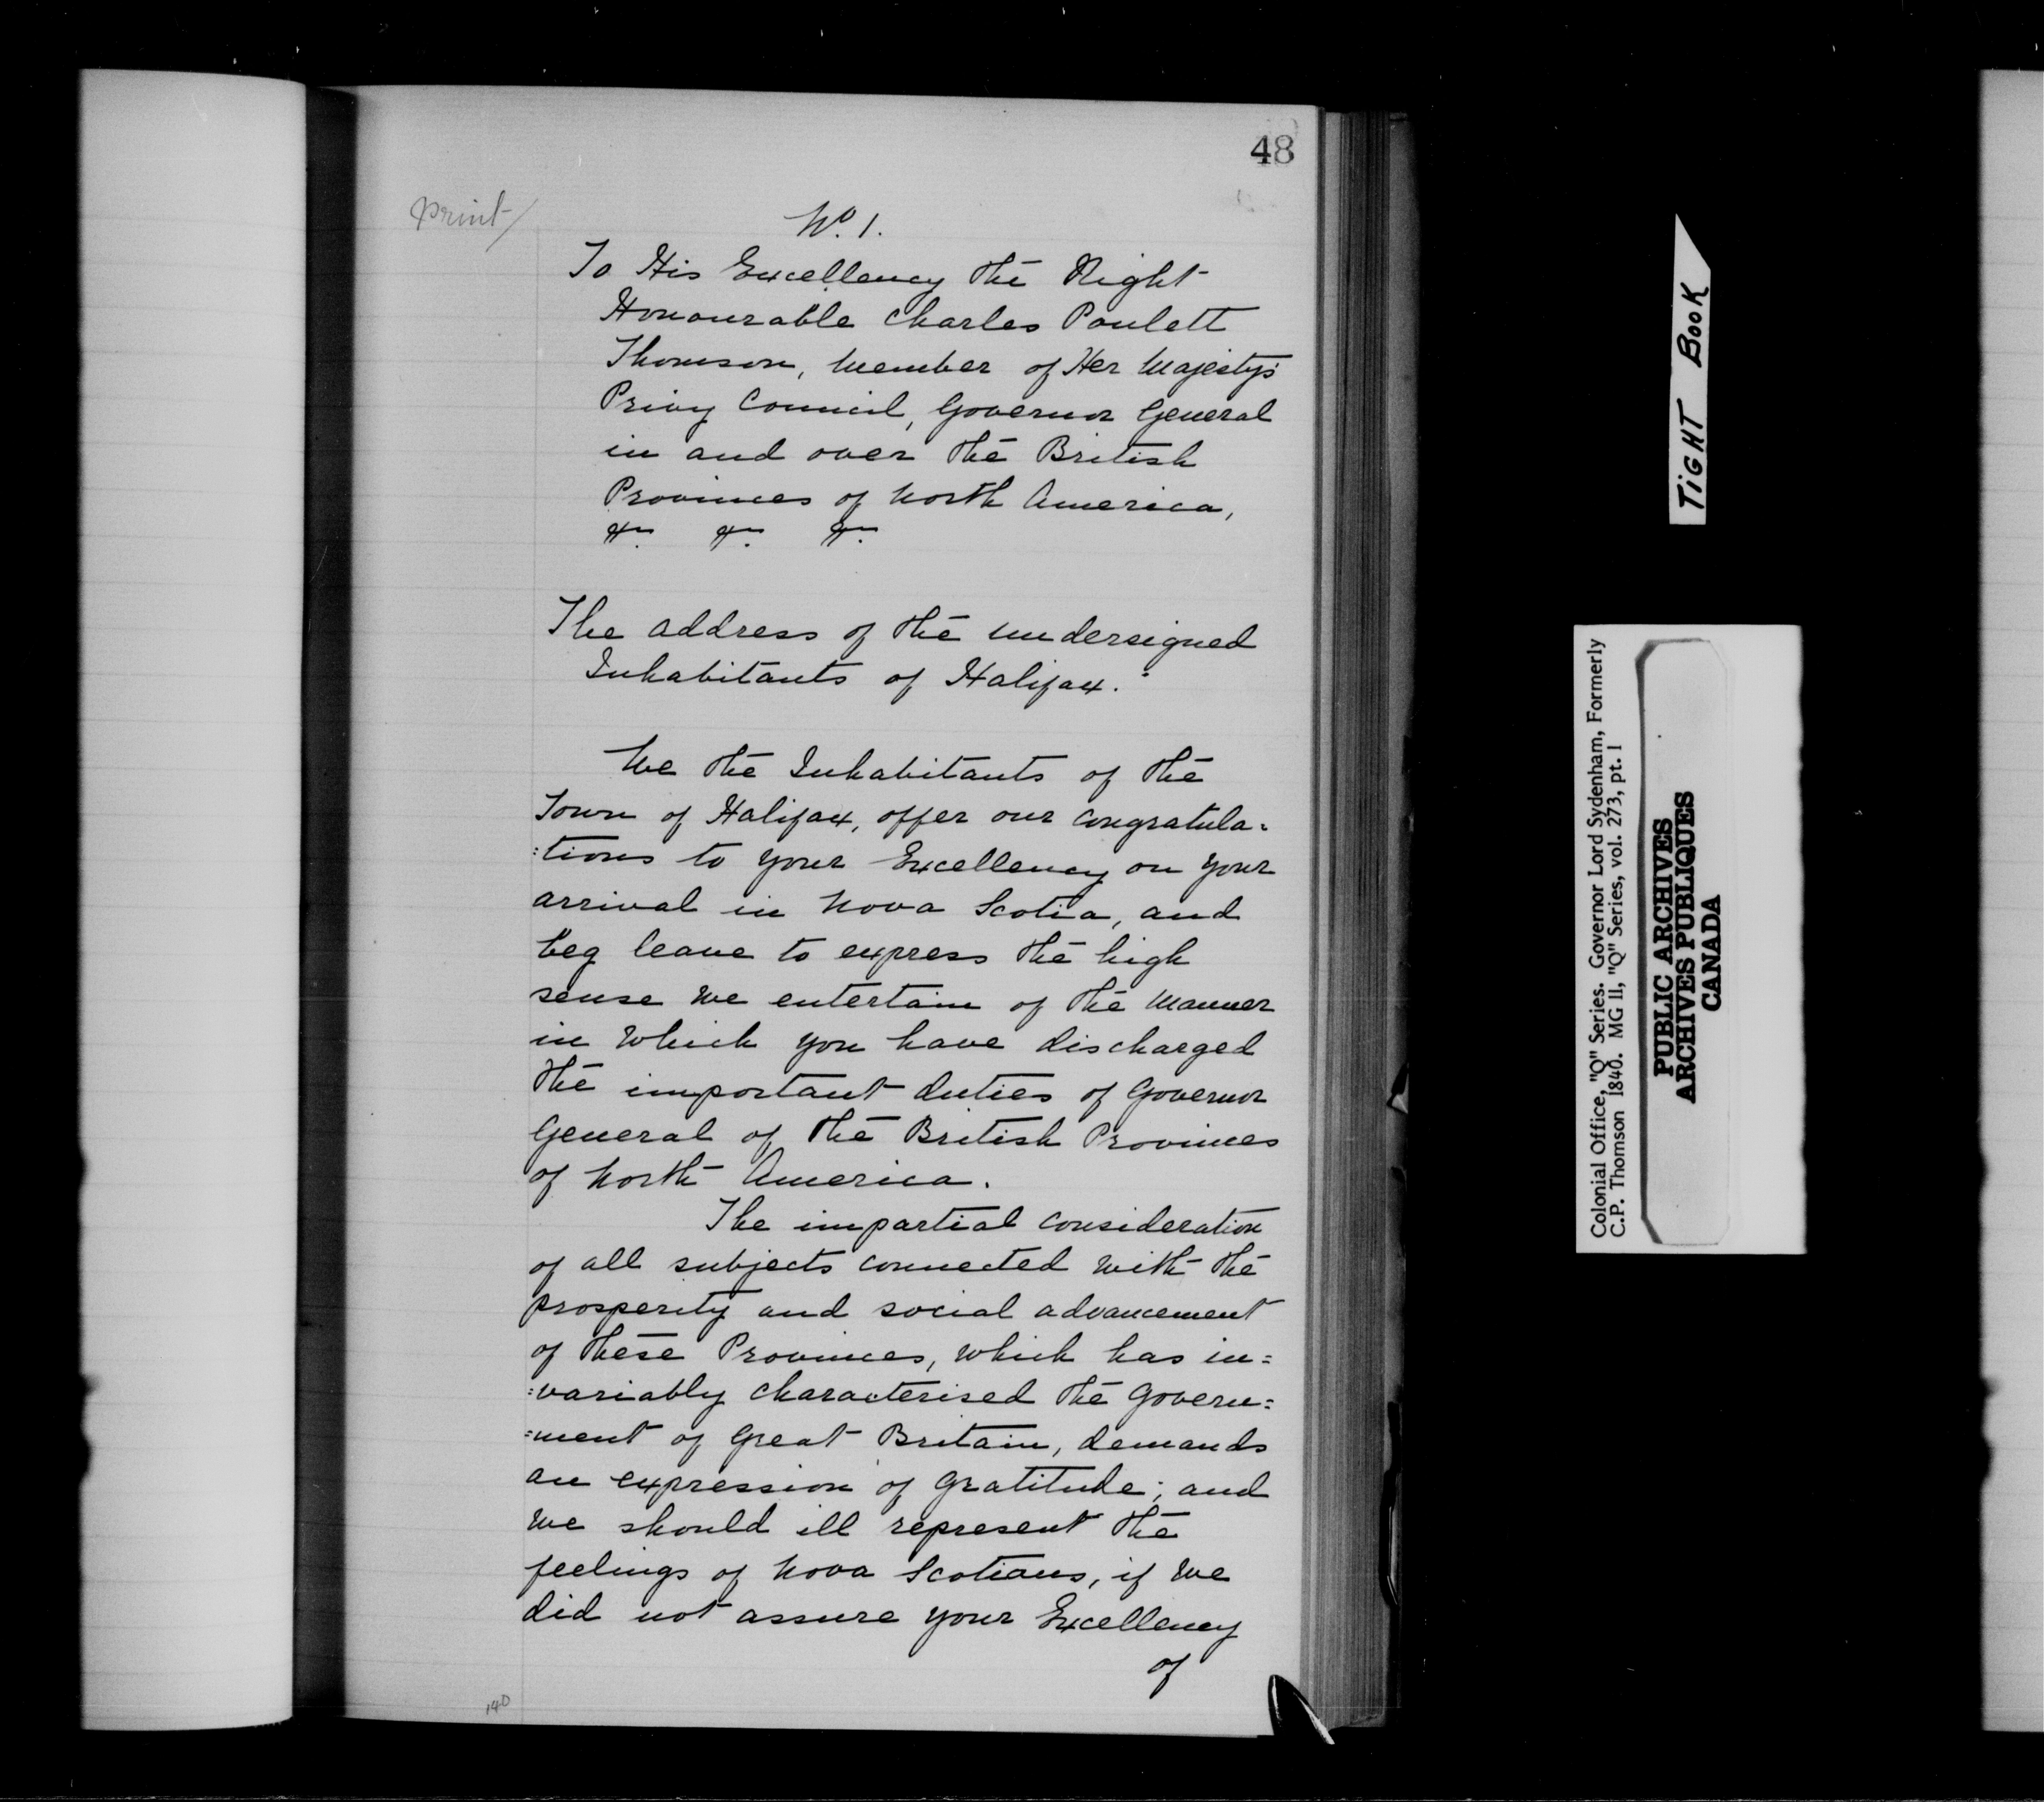 48
print/
No. 1.
To His Excellency the Right
Honourable Charles Poulett
Thomson, Member of Her Majesty's
Privy Council, Governor General
in and over the British
Provinces of North America,
&c. &c. &c.
The address of the undersigned
Inhabitants of Halifax.
We the Inhabitants of the
Town of Halifax, offer our congratula=
:tions to your Excellency on your
arrival in Nova Scotia, and
beg leave to express the high
sense we entertain of the manner
in which you have discharged
the important duties of Governor
General of the British Provinces
of North America.
The impartial consideration
of all subjects connected with the
prosperity and social advancement
of these Provinces, which has in=
=variably characterised the Govern=
=ment of Great Britain, demands
an expression of gratitude; and
we should ill represent the
feelings of Nova Scotians, if we
did not assure your Excellency
of
140
TIGHT BOOK
Colonial Office, "Q" Series. Governor Lord Sydenham, Formerly
C.P. Thomson 1840. MG 11, "Q" Series, vol. 273, pt. 1
PUBLIC ARCHIVES
ARCHIVES PUBLIQUES
CANADA